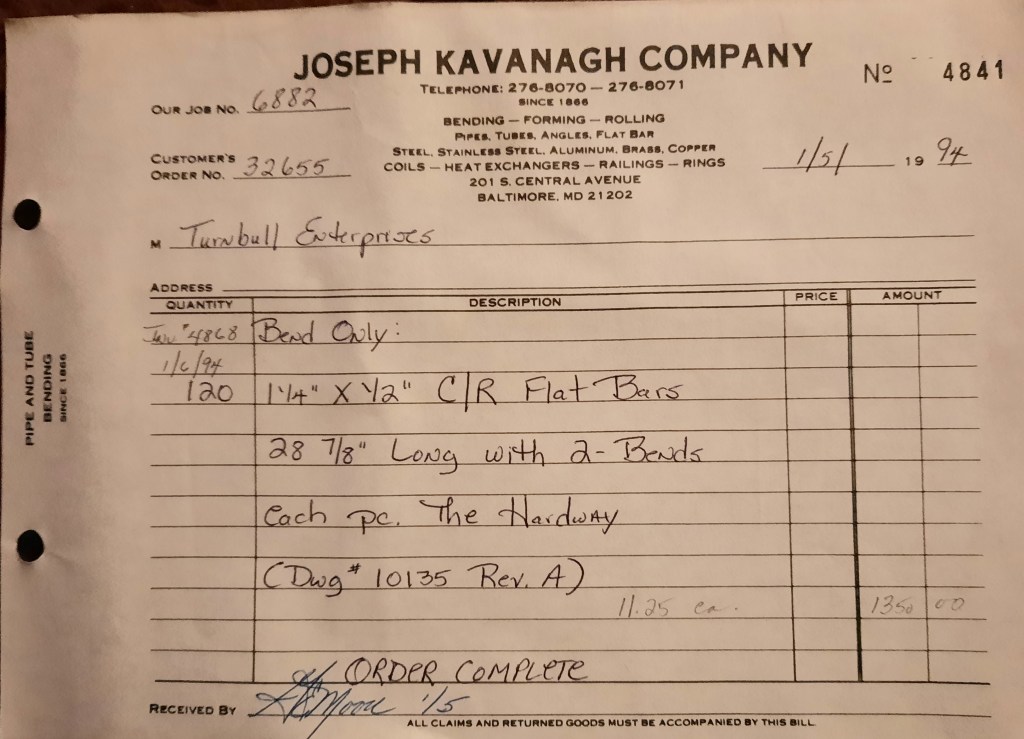 JOSEPH KAVANAGH COMPANY
Nº 4841
TELEPHONE: 276-8070 — 276-8071
SINCE 1866
OUR JOB NO. 6882
BENDING — FORMING — ROLLING
PIPES, TUBES, ANGLES, FLAT BAR
STEEL, STAINLESS STEEL, ALUMINUM, BRASS, COPPER
CUSTOMER'S ORDER NO. 32655
COILS — HEAT EXCHANGERS — RAILINGS — RINGS
1/5/ 19 94
201 S. CENTRAL AVENUE
BALTIMORE, MD 21202
M Turnbull Enterprises
ADDRESS
QUANTITY DESCRIPTION PRICE AMOUNT
Inv #4868 Bend Only:
1/6/94
120 1 1/4" X 1/2" C/R Flat Bars
28 7/8" Long with 2- Bends
Each pc. The Hardway
(Dwg # 10135 Rev. A)
11.25 ea. 1350 00
ORDER COMPLETE
RECEIVED BY Moore 1/5
ALL CLAIMS AND RETURNED GOODS MUST BE ACCOMPANIED BY THIS BILL
PIPE AND TUBE
BENDING
SINCE 1866